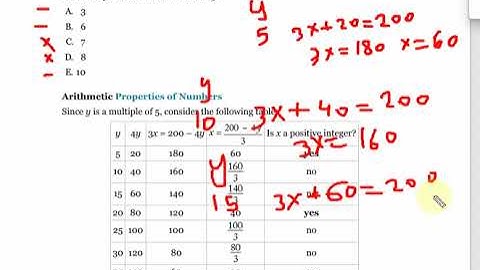 A. 3
B. 6
C. 7
D. 8
E. 10
y
5
3x+20=200
3x=180 x=60
Arithmetic Properties of Numbers
Since y is a multiple of 5, consider the following table
y
10
3x+40=200
3x=160
y 4y 3x = 200 − 4y x = 200 − 4y / 3 Is x a positive integer?
5 20 180 60 yes
10 40 160 160/3 no
y
15
3x+60=200
15 60 140 140/3
20 80 120 40 yes
25 100 100 100/3 no
30 120 80 80/3 no